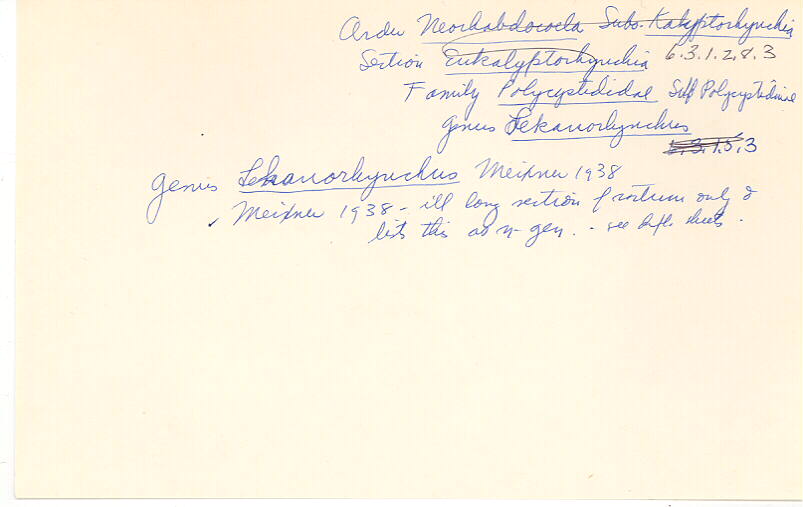 Order Neorhabdocoela Subo. Kalyptorhynchia
Section Eukalyptorhynchia 6.3.1.2.8.3
Family Polycystididae Subf Polycystidinae
genus Lekanorhynchus
6.3.1.5.3
Genus Lekanorhynchus Meixner 1938
Meixner 1938 - ill long section of rostrum only &
lists this as n. gen. - see sheets.